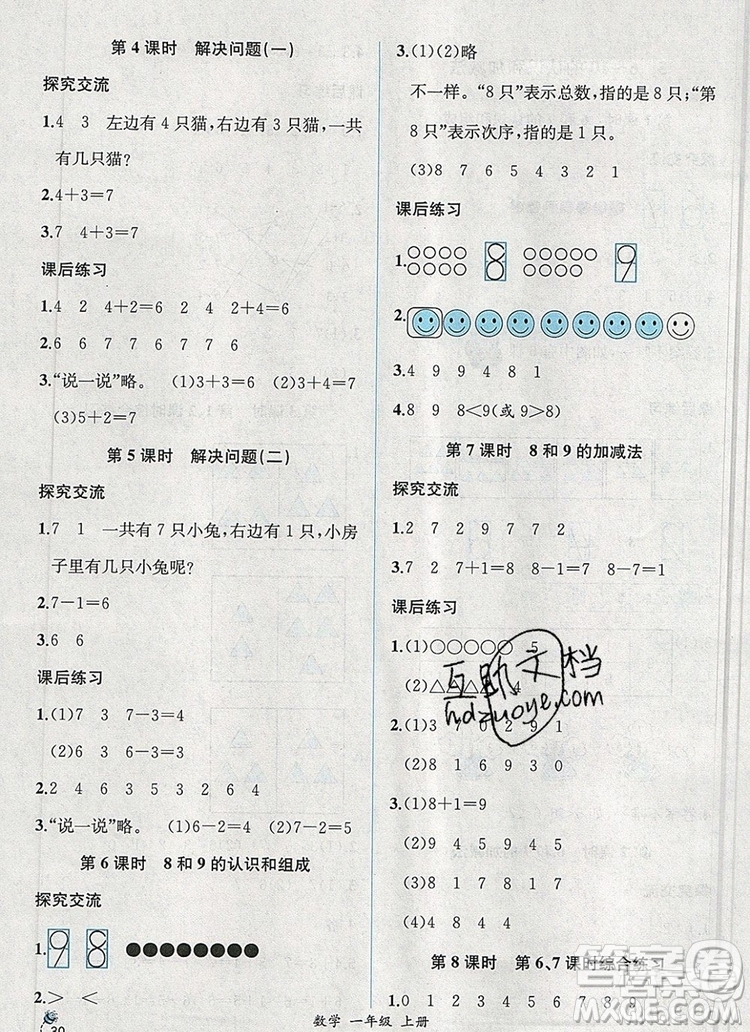 第4课时 解决问题(一)
探究交流
1.4 3 左边有4只猫,右边有3只猫,一共
有几只猫?
2.4+3=7
3.7 4+3=7
课后练习
1.4 2 4+2=6
2.6 7 6 7 7 6
3.“说一说”略。 (1)3+3=6 (2)3+4=7
(3)5+2=7
第5课时 解决问题(二)
探究交流
1.7 1 一共有7只小兔,右边有1只,小房
子里有几只小兔呢?
2.7-1=6
3.6 6
课后练习
1.(1)7 3 7-3=4
(2)6 3 6-3=3
2.4 6 5 3 2 3 6 4
3.“说一说”略。 (1)6-2=4 (2)7-2=5
第6课时 8和9的认识和组成
探究交流
1.9 8 ●●●●●●●●
2.> <
30
3.(1)(2)略
不一样。“8只”表示总数,指的是8只;“第
8只”表示次序,指的是1只。
(3)8 7 6 5 4 3 2 1
课后练习
1.○○○○ 8 ○○○○○ 9
○○○○ ○○○○
2.
3.4 9 9 4 8 1
4.8 9 8<9(或9>8)
第7课时 8和9的加减法
探究交流
1.2 7 2 9 7 7 2
3.7 7+1=8 8-1=7
课后练习
1.(1)○○○○○○ 5
(2)△△△△ 4
2.(1)3 7 7 0 2 9 1
(2)8 1 6 9 3 0
3.(1)8+1=9
(2)9 4 5 9 4 5
(3)1 7 8 1 7 8
(4)4 8 4
第8课时 第6、7课时综合练习
1.0 1 2 3 4 5 6 7 8 9
数学 一年级 上册
互助文档
hdzuoye.com
答案圈